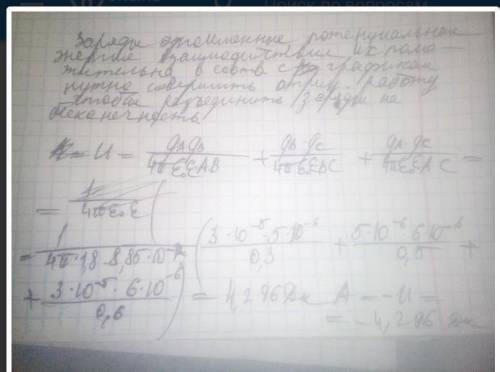 Заряды одноименные потенциальная
энергия взаимодействия их поло-
жительна в соотв с графиком
нужно совершить отриц. работу
чтобы разъединить заряды на
бесконечность
U = qAqB/4πε₀εAB + qB·qC/4πε₀εBC + qA·qC/4πε₀εAC =
= 1/4πε₀ε (
= 1/4π·1,8·8,85·10 ( 3·10⁻⁵·5·10⁻⁶/0,3 + 5·10⁻⁶·6·10⁻⁶/0,5 +
+ 3·10⁻⁵·6·10⁻⁶/0,6 ) = 4,296Дж A = -U =
= -4,296 Дж